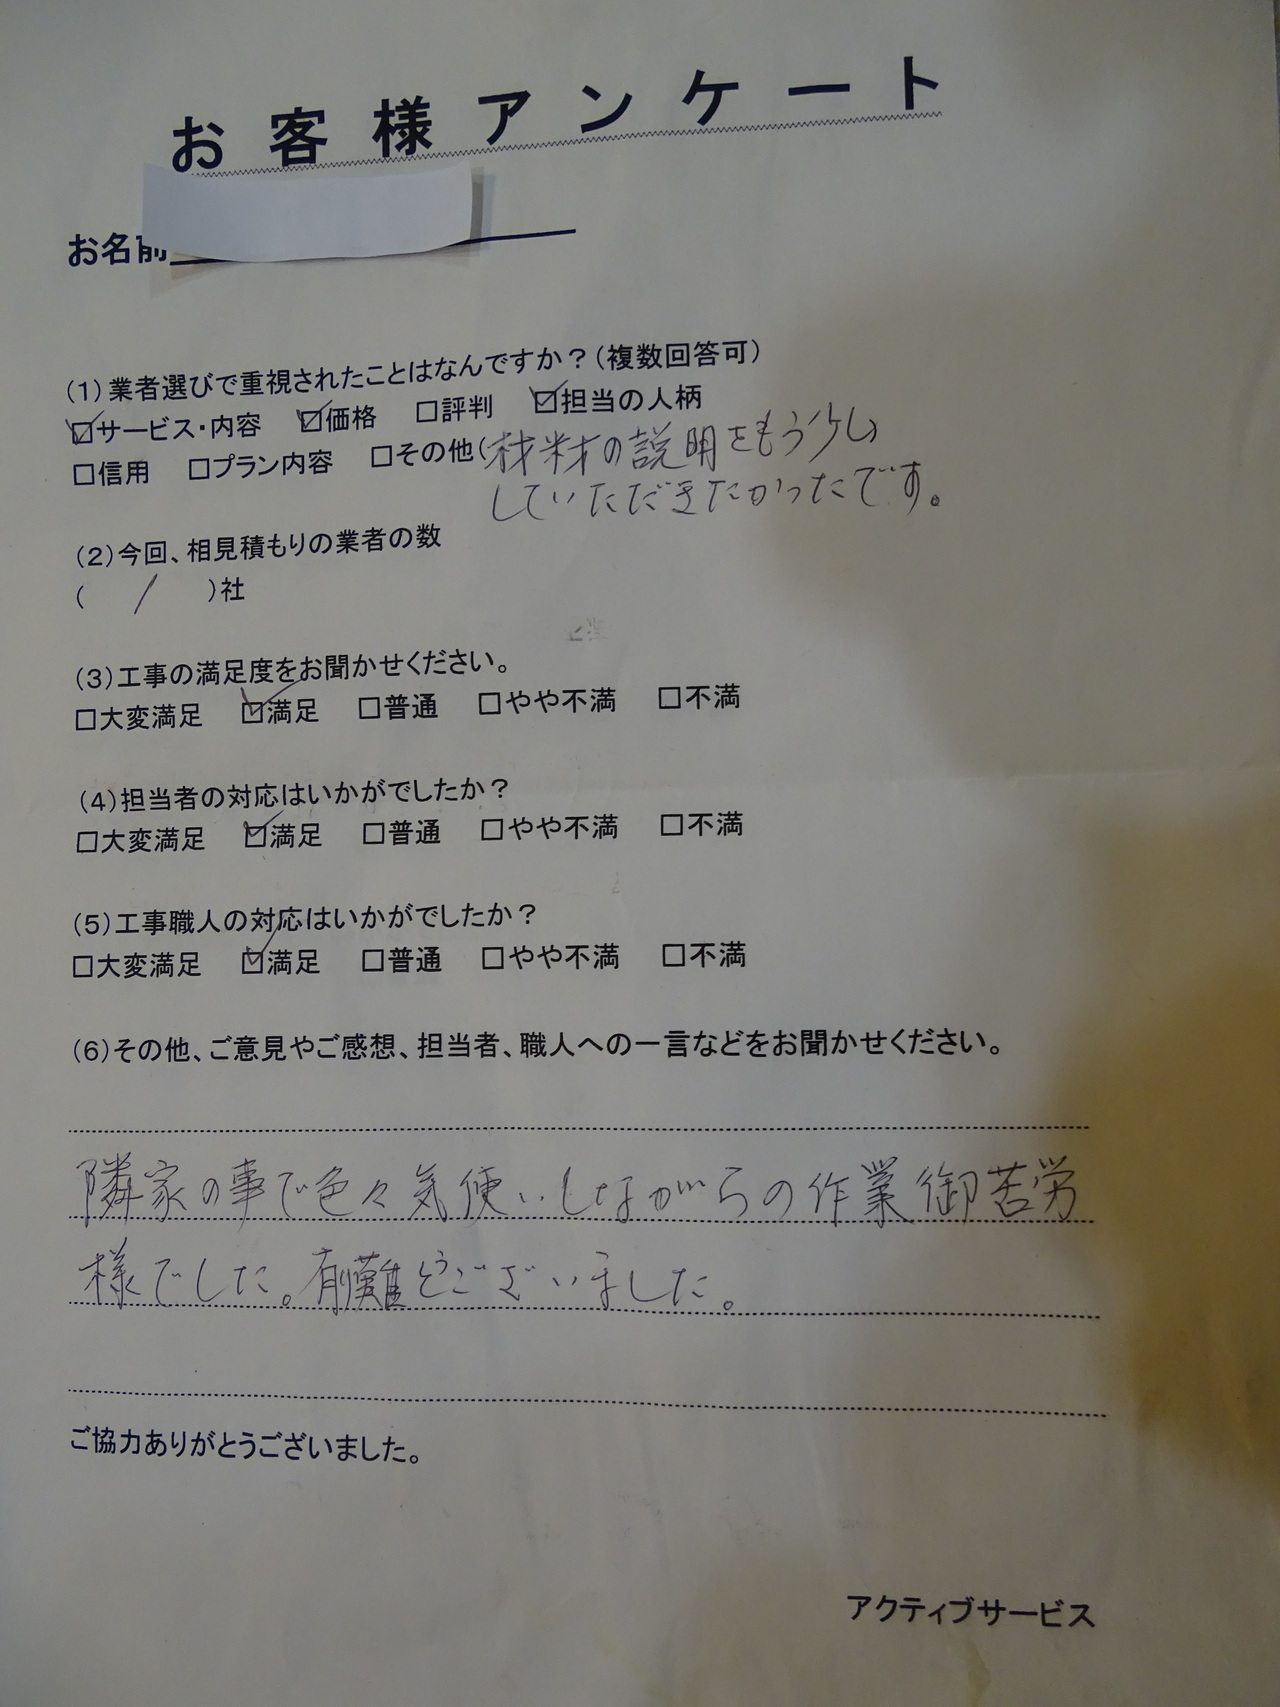 お客様アンケート
お名前
(1)業者選びで重視されたことはなんですか?(複数回答可)
☑サービス・内容 ☑価格 □評判 ☑担当の人柄
□信用 □プラン内容 □その他(材料の説明をもう少し
していただきたかったです。
(2)今回、相見積もりの業者の数
( / )社
(3)工事の満足度をお聞かせください。
□大変満足 ☑満足 □普通 □やや不満 □不満
(4)担当者の対応はいかがでしたか?
□大変満足 ☑満足 □普通 □やや不満 □不満
(5)工事職人の対応はいかがでしたか?
□大変満足 ☑満足 □普通 □やや不満 □不満
(6)その他、ご意見やご感想、担当者、職人への一言などをお聞かせください。
隣家の事で色々気使いしながらの作業御苦労
様でした。有難とうございました。
ご協力ありがとうございました。
アクティブサービス